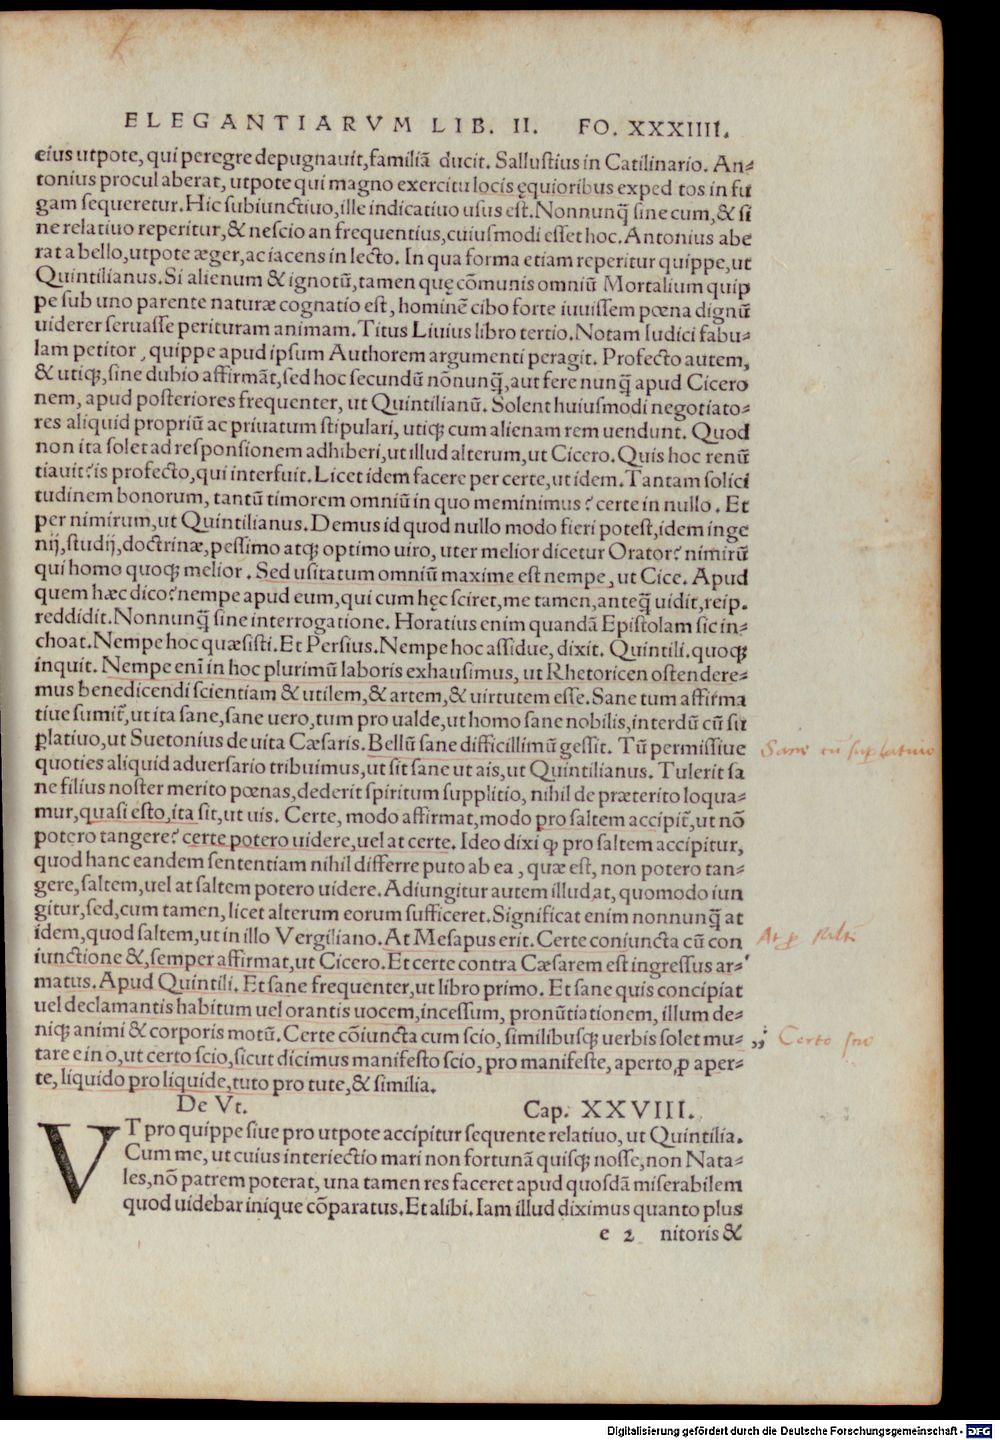 ELEGANTIARVM LIB. II. FO. XXXIIII.
eius utpote, qui peregre depugnauit, familiã ducit. Sallustius in Catilinario. An-
tonius procul aberat, utpote qui magno exercitu locis ęquioribus exped tos in fu
gam sequeretur. Hic subiunctiuo, ille indicatiuo usus est. Nonnunq̃ sine cum, & si
ne relatiuo reperitur, & nescio an frequentius, cuiusmodi esset hoc. Antonius abe
rat a bello, utpote æger, ac iacens in lecto. In qua forma etiam reperitur quippe, ut
Quintilianus. Si alienum & ignotũ, tamen quę cõmunis omniũ Mortalium quip
pe sub uno parente naturæ cognatio est, hominẽ cibo forte iuuissem pœna dignũ
uiderer seruasse perituram animam. Titus Liuius libro tertio. Notam Iudici fabu-
lam petitor, quippe apud ipsum Authorem argumenti peragit. Profecto autem,
& utiqꝫ, sine dubio affirmãt, sed hoc secundũ nõnunq̃, aut fere nunq̃ apud Cicero
nem, apud posteriores frequenter, ut Quintilianũ. Solent huiusmodi negotiato-
res aliquid propriũ ac priuatum stipulari, utiqꝫ cum alienam rem uendunt. Quod
non ita solet ad responsionem adhiberi, ut illud alterum, ut Cicero. Quis hoc renũ
tiauit? is profecto, qui interfuit. Licet idem facere per certe, ut idem. Tantam solici
tudinem bonorum, tantũ timorem omniũ in quo meminimus? certe in nullo. Et
per nimirum, ut Quintilianus. Demus id quod nullo modo fieri potest, idem inge
nij, studij, doctrinæ, pessimo atqꝫ optimo uiro, uter melior dicetur Orator? nimirũ
qui homo quoqꝫ melior. Sed usitatum omniũ maxime est nempe, ut Cice. Apud
quem hæc dico? nempe apud eum, qui cum hęc sciret, me tamen, anteq̃ uidit, reip.
reddidit. Nonnunq̃ sine interrogatione. Horatius enim quandã Epistolam sic in-
choat. Nempe hoc quæsisti. Et Persius. Nempe hoc assidue, dixit. Quintili. quoqꝫ
inquit. Nempe enĩ in hoc plurimũ laboris exhausimus, ut Rhetoricen ostendere-
mus benedicendi scientiam & utilem, & artem, & uirtutem esse. Sane tum affirma
tiue sumit̃, ut ita sane, sane uero, tum pro ualde, ut homo sane nobilis, interdũ cũ su
ꝑlatiuo, ut Suetonius de uita Cæsaris. Bellũ sane difficillimũ gessit. Tũ permissiue
quoties aliquid aduersario tribuimus, ut sit sane ut ais, ut Quintilianus. Tulerit sa
ne filius noster merito pœnas, dederit spiritum supplitio, nihil de præterito loqua-
mur, quasi esto, ita sit, ut uis. Certe, modo affirmat, modo pro saltem accipit̃, ut nõ
potero tangere? certe potero uidere, uel at certe. Ideo dixi ꝙ pro saltem accipitur,
quod hanc eandem sententiam nihil differre puto ab ea, quæ est, non potero tan-
gere, saltem, uel at saltem potero uidere. Adiungitur autem illud, at, quomodo iun
gitur, sed, cum tamen, licet alterum eorum sufficeret. Significat enim nonnunq̃ at
idem, quod saltem, ut in illo Vergiliano. At Mesapus erit. Certe coniuncta cũ con
iunctione &, semper affirmat, ut Cicero. Et certe contra Cæsarem est ingressus ar-
matus. Apud Quintili. Et sane frequenter, ut libro primo. Et sane quis concipiat
uel declamantis habitum uel orantis uocem, incessum, pronũtiationem, illum de-
niqꝫ animi & corporis motũ. Certe cõiuncta cum scio, similibusqꝫ uerbis solet mu-
tare e in o, ut certo scio, sicut dicimus manifesto scio, pro manifeste, aperto ꝓ aper-
te, liquido pro liquide, tuto pro tute, & similia.
De Vt. Cap. XXVIII.
VT pro quippe siue pro utpote accipitur sequente relatiuo, ut Quintilia.
Cum me, ut cuius interiectio mari non fortunã quisqꝫ nosse, non Nata-
les, nõ patrem poterat, una tamen res faceret apud quosdã miserabilem
quod uidebar inique cõparatus. Et alibi. Iam illud diximus quanto plus
e 2 nitoris &
Sane cũ suꝑlatiuo
At ꝓ saltẽ
Certo scio
Digitalisierung gefördert durch die Deutsche Forschungsgemeinschaft - DFG